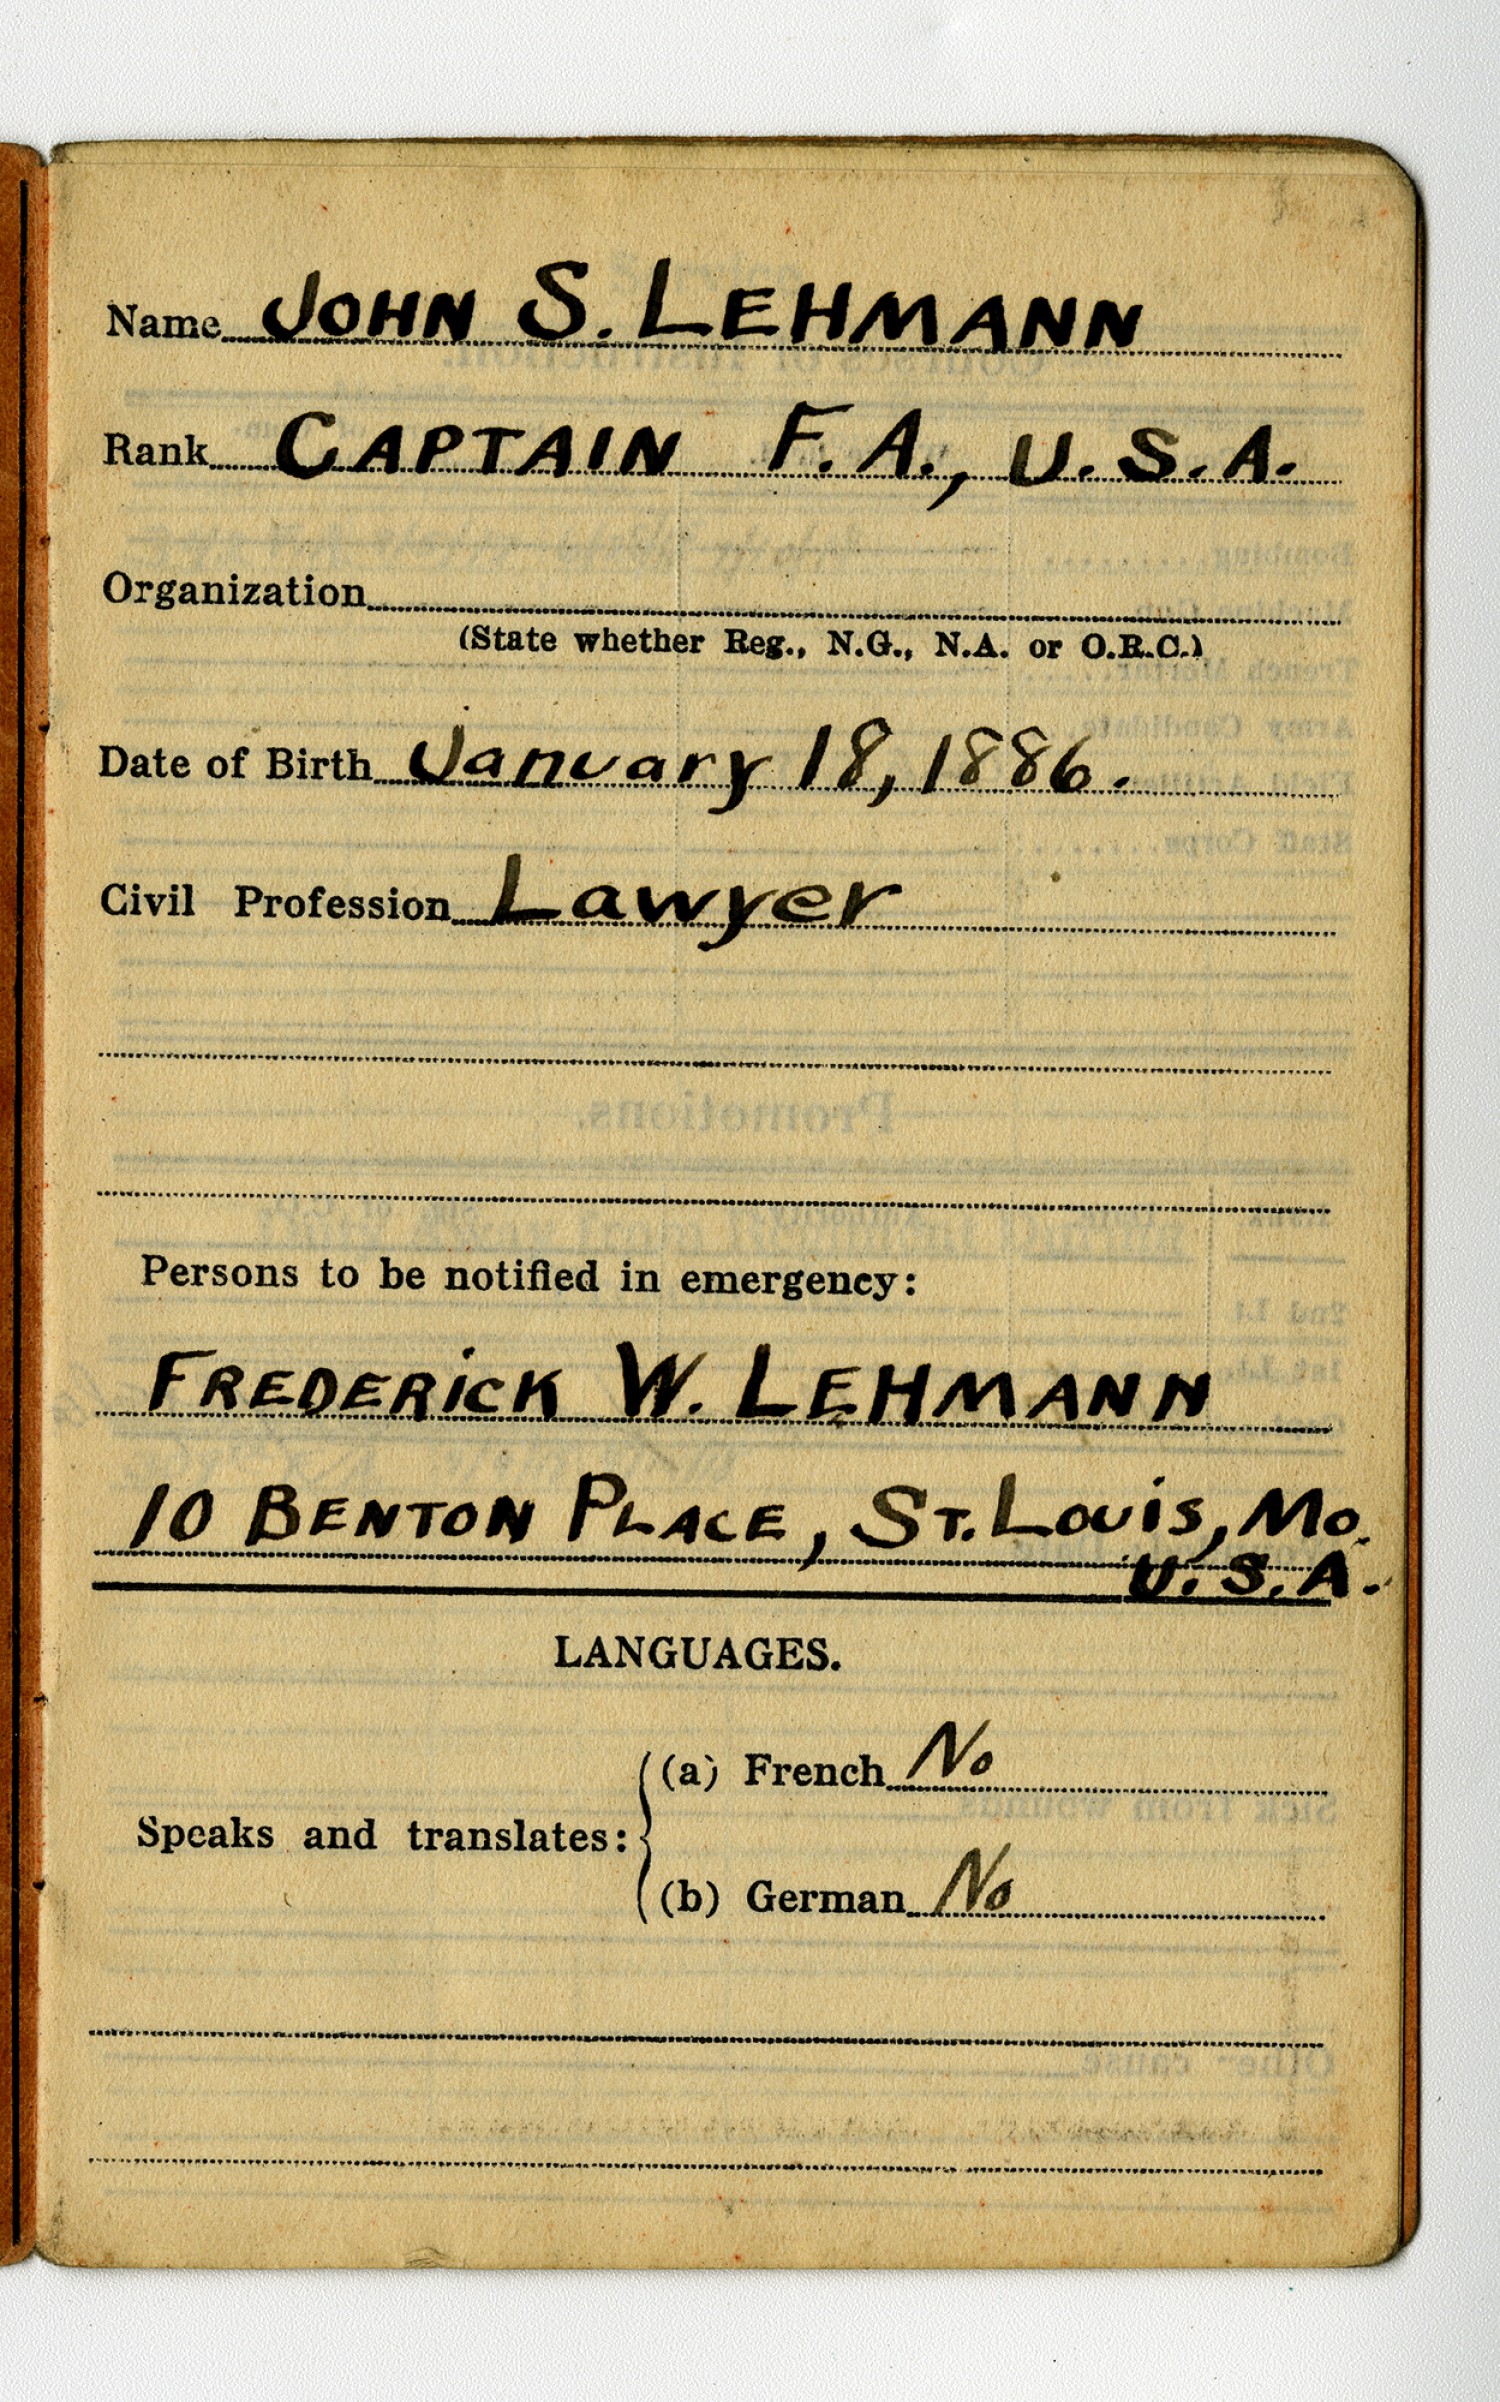 Name JOHN S. LEHMANN
Rank CAPTAIN F. A., U.S.A.
Organization
(State whether Reg., N.G., N.A. or O.R.C.)
Date of Birth January 18, 1886.
Civil Profession Lawyer
Persons to be notified in emergency:
FREDERICK W. LEHMANN
10 BENTON PLACE, ST. LOUIS, MO.
U.S.A.
LANGUAGES.
(a) French No
Speaks and translates:
(b) German No